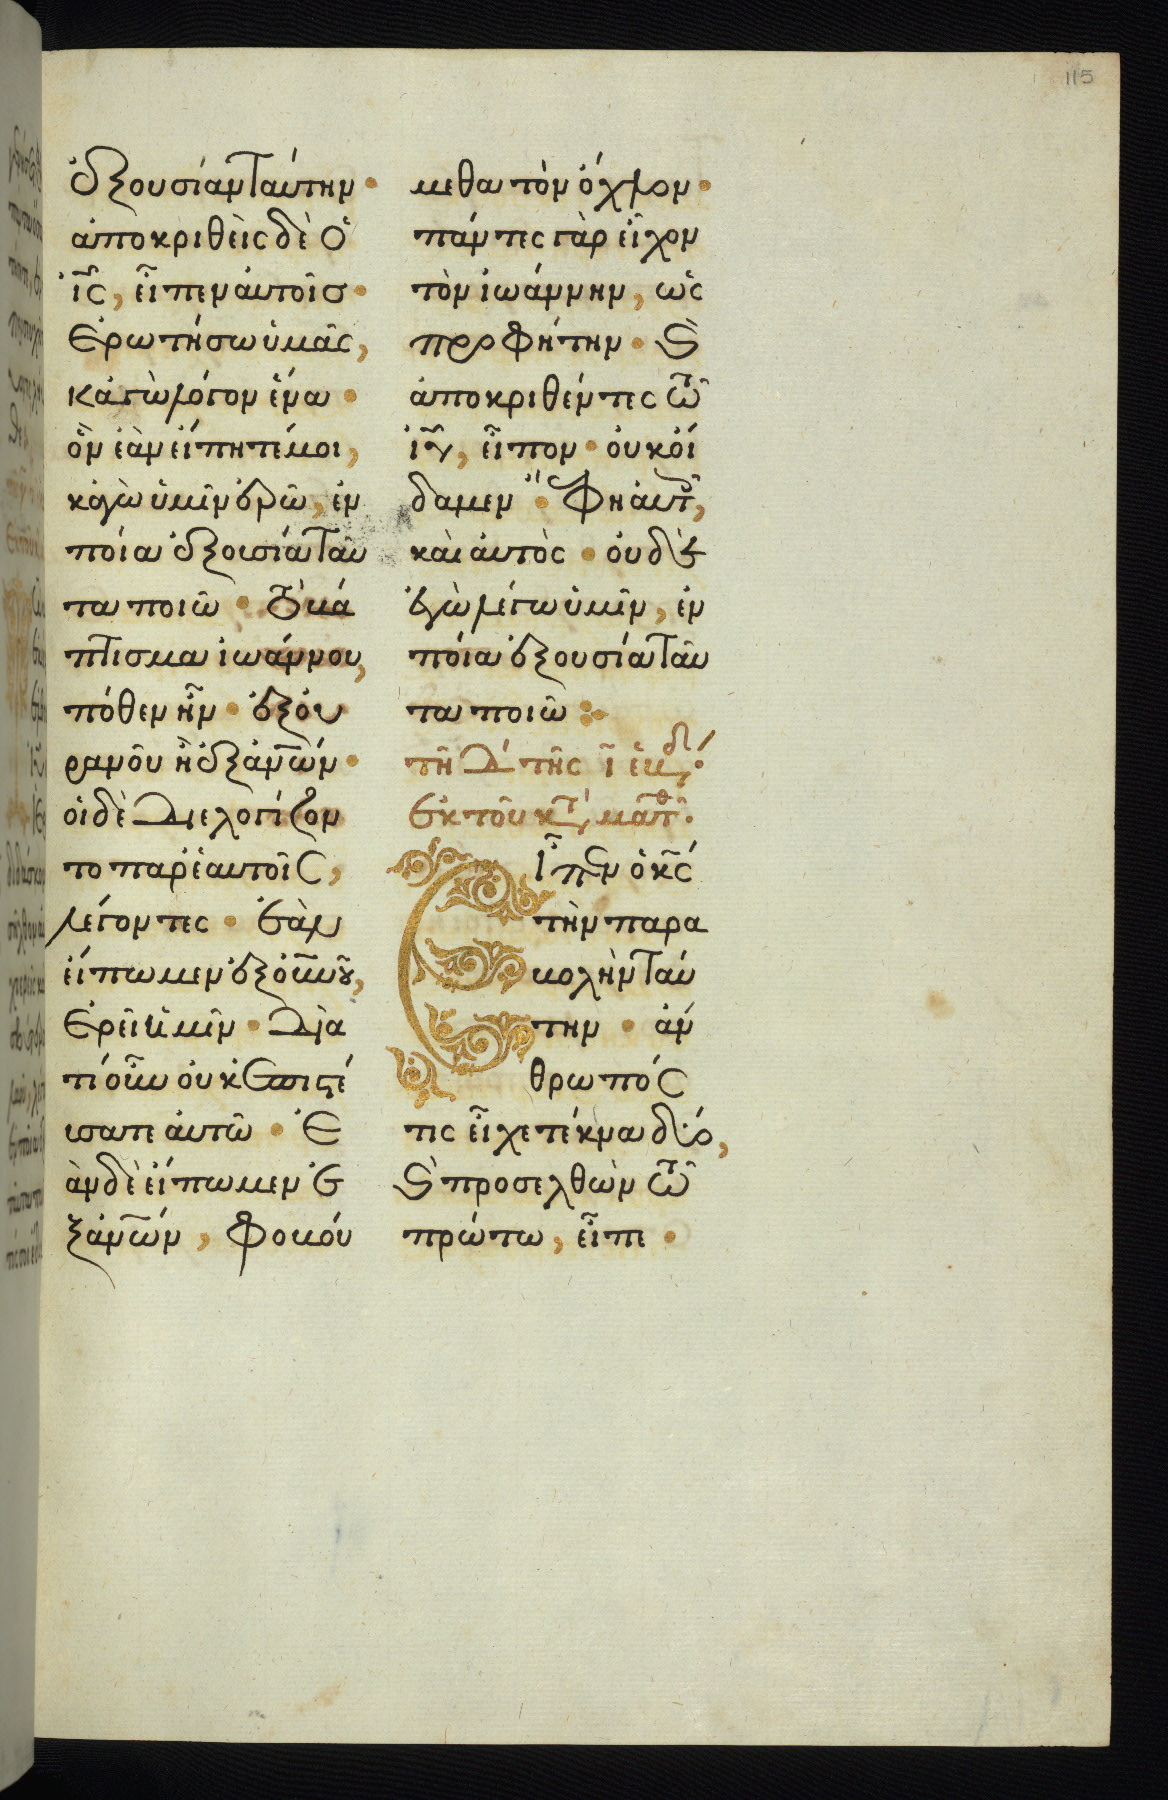 115
ἐξουσίαν ταύτην ·
ἀποκριθεὶς δὲ ὁ
ἰς̅, εἶπεν αὐτοῖσ ·
Ἐρωτήσω ὑμᾶς,
κἀγὼ λόγον ἕνα ·
ὃν ἐὰν εἴπητέ μοι,
κἀγὼ ὑμῖν ἐρῶ, ἐν
ποία ἐξουσία ταῦ
τα ποιῶ · Τὸ βά
πτισμα ἰωάννου,
πόθεν ἦν · ἐξ οὐ
ρανοῦ ἢ ἐξ ἀν̅ων ·
οἱ δὲ Διελογίζον
το παρ' ἑαυτοῖς,
λέγοντες · Ἐὰν
εἴπωμεν ἐξ οὐν̅ου,
Ἐρεῖ ἡμῖν · Διὰ
τί οὖν οὐκ Ἐπιστεύ
σατε ἀυτῶ · Ἐ
ὰν δὲ εἴπωμεν ἐ
ξ ἀν̅ων, Φοβού
μεθα τὸν ὄχλον ·
πάντες γὰρ εἶχον
τὸν ἰωάννην, ὡς
προφήτην · Καὶ
ἀποκριθέντες τῶ
ἰυ̅, εἶπον · οὐκ οἴ
δαμεν · Ἔφη αὐτοῖς,
καὶ αὐτὸς · οὐδὲ
ἐγὼ λέγω ὑμῖν, ἐν
ποία ἐξουσία ταῦ
τα ποιῶ ·:·
τῆ Δ' τῆς ι̅ ἑβδ ·
Ἐκ τοῦ κτ̅ ματθ ·
Εἶπεν ὁ κς̅
τὴν παρα
βολὴν ταύ
την · ἄν
θρωπός
τις εἶχε τέκνα δύο,
Καὶ προσελθὼν τῶ
πρώτω, εἶπε ·